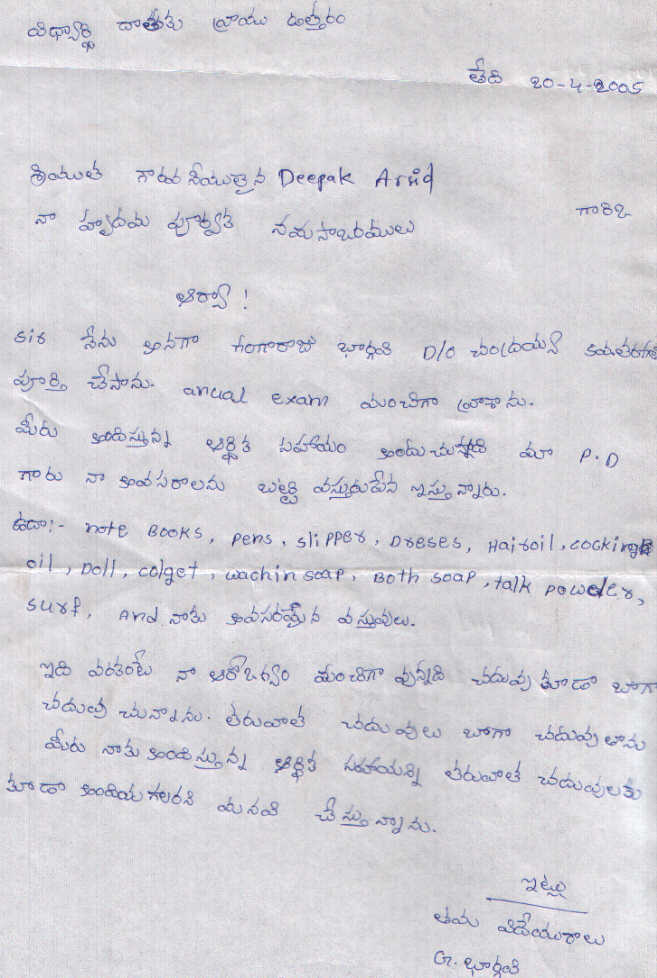 విధ్యార్థి దాతకు వ్రాయు ఉత్తరం
తేది 20-4-2005
శ్రీయుత గౌరవనీయులైన Deepak Arvid
గారికి
నా హృదయ పూర్వక నమస్కారములు
ఆర్యా !
sir నేను అనగా గంగారాజు భార్గవి D/o చంద్రయ్య
పూర్తి చేసాను. anual exam మంచిగా వ్రాశాను.
మీరు అందిస్తున్న ఆర్థిక సహాయం అందుచున్నది మా P.D
గారు నా అవసరాలను బట్టి వస్తురుపేన ఇస్తున్నారు.
ఉదా:- note BOOKS, pens, slipper, Dreses, Hairoil, cocking
oil, Doll, colget, wachin soap, Both soap, talk powder,
surf, And నాకు అవసరమైన వస్తువులు.
ఇది వరకంటే నా ఆరోగ్యం మంచిగా వున్నది చదువు కూడా బాగా
చదువు చున్నాను. తరువాత చదువులు బాగా చదువుతాను
మీరు నాకు అందిస్తున్న ఆర్థిక సహాయన్ని తరువాత చదువులకు
కూడా అందియగలరని మనవి చేస్తున్నాను.
ఇట్లు
తమ విదేయురాలు
G. భార్గవి